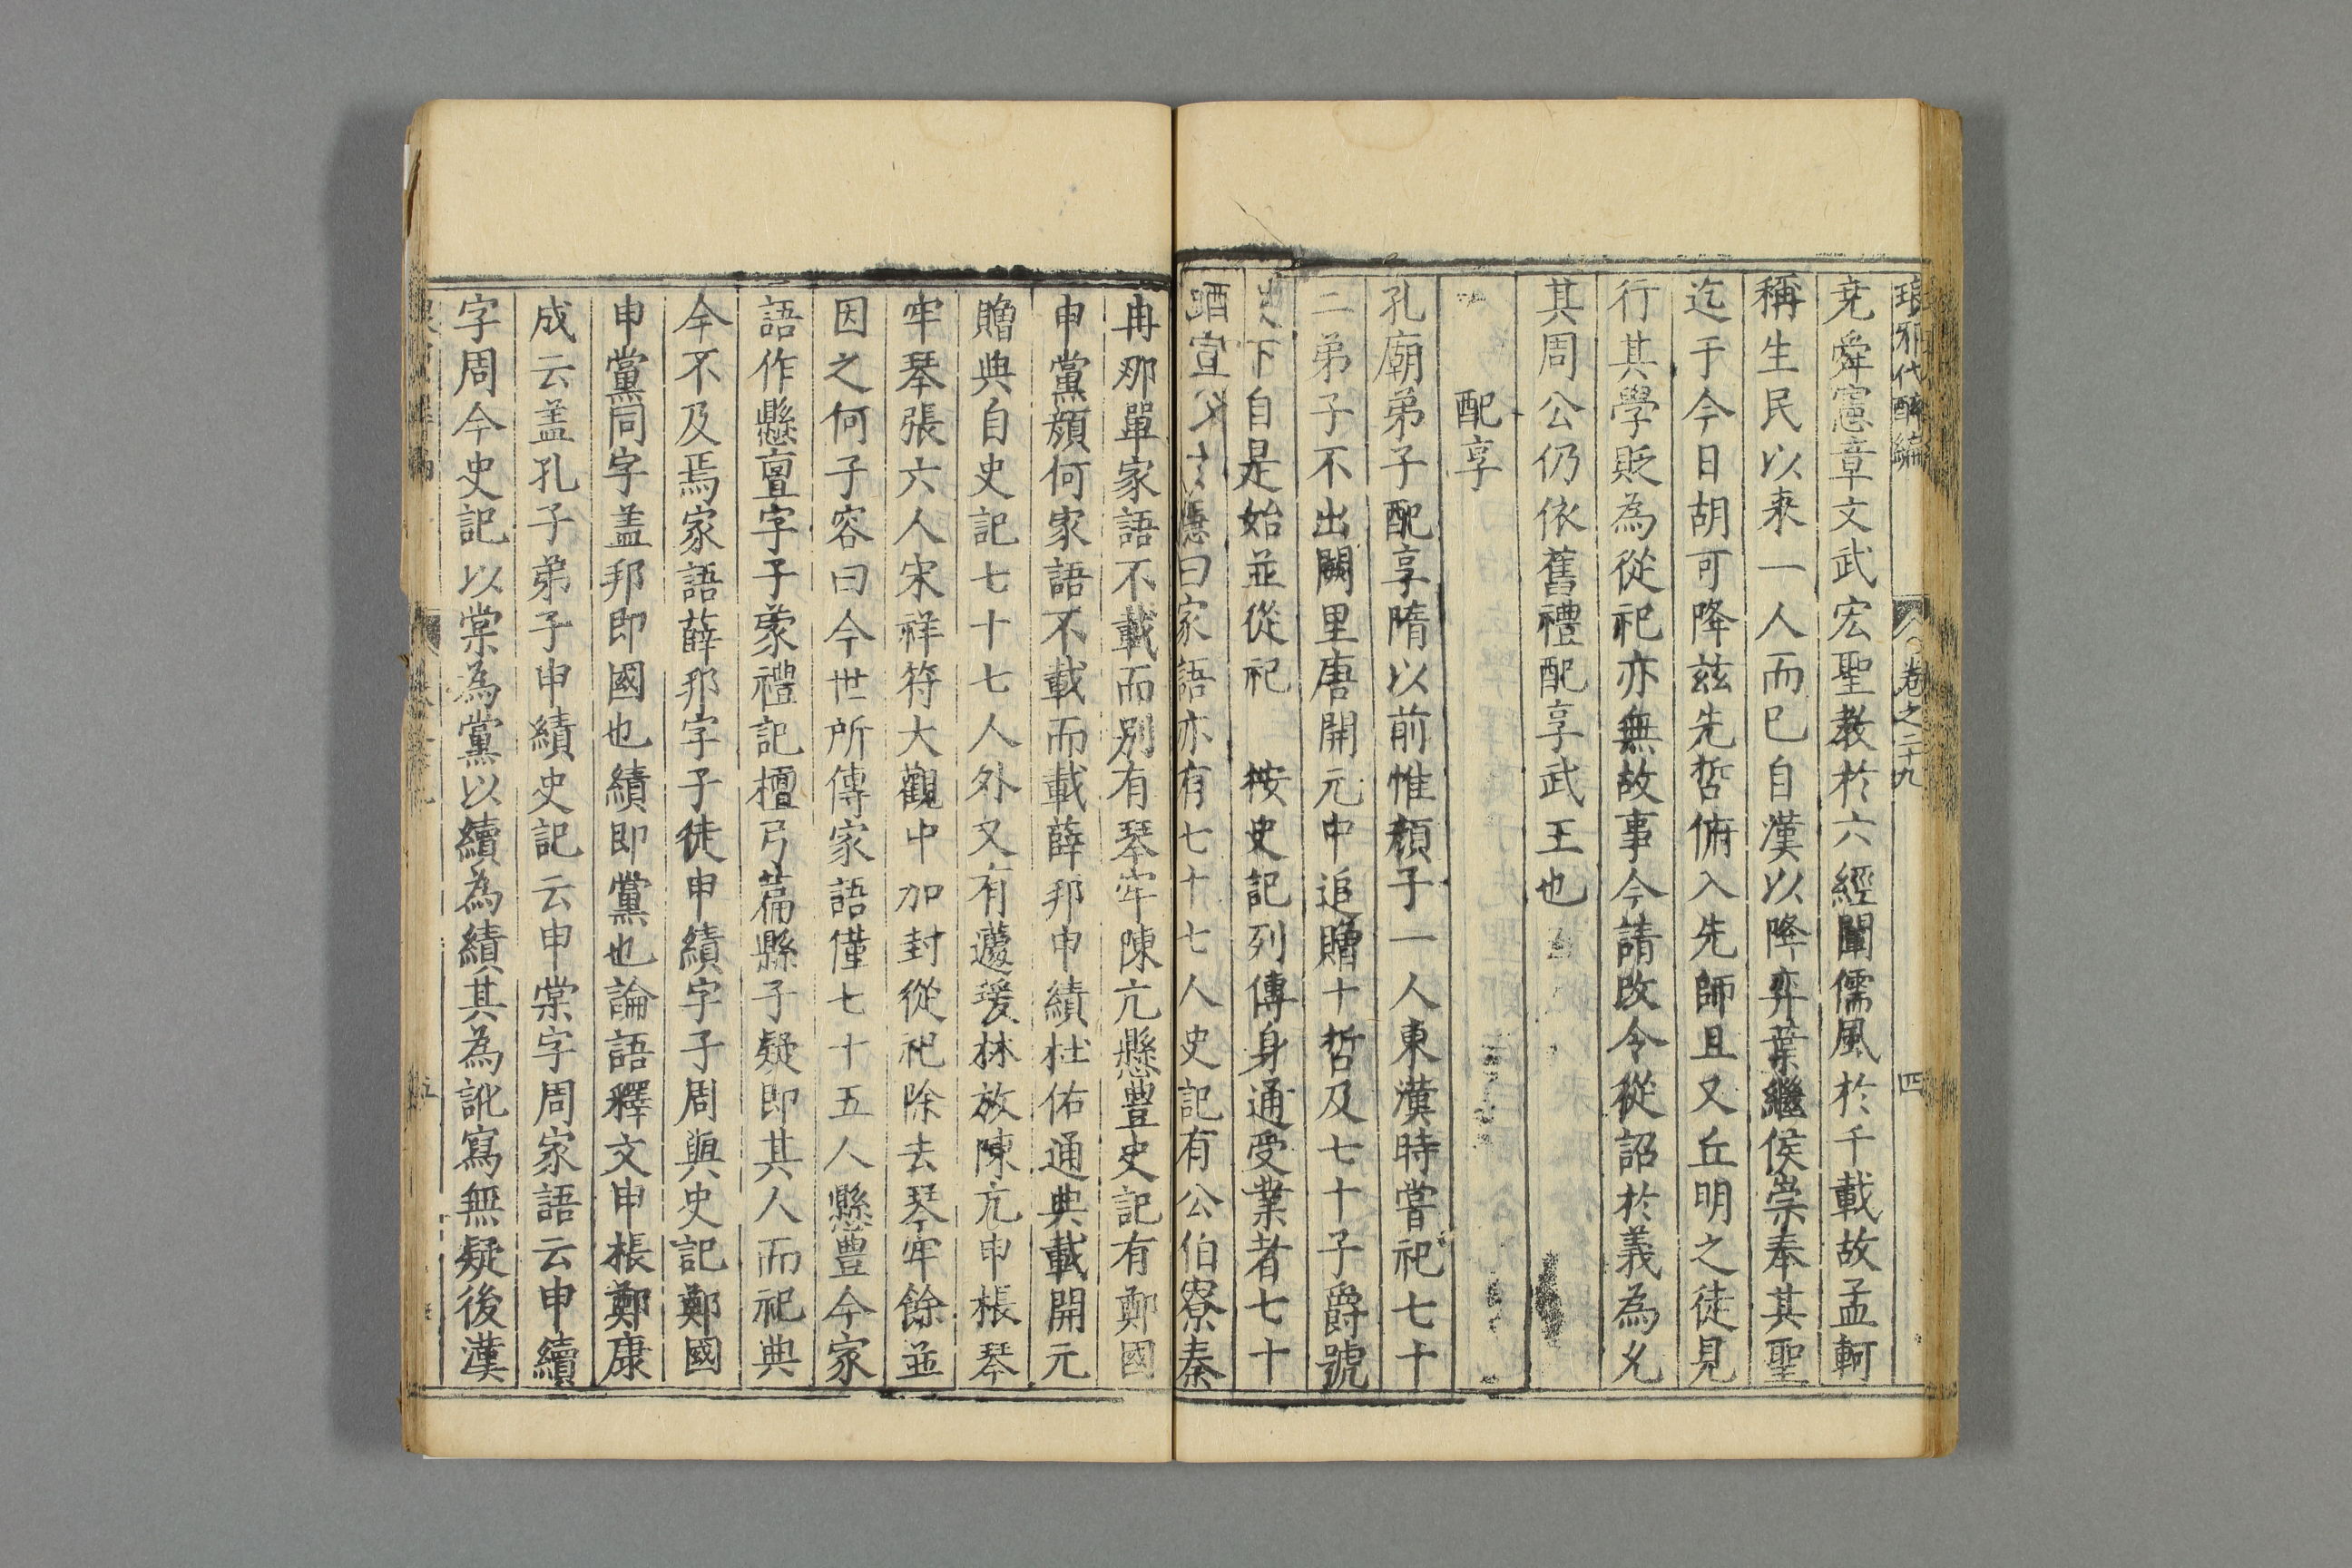 琅邪代醉編 卷之二十九 四
尭舜憲章文武宏聖教於六經闡儒風於千載故孟軻
稱生民以来一人而已自漢以降弈葉繼侯崇奉其聖
迄于今日胡可降茲先哲俯入先師且又丘明之徒見
行其學貶為從祀亦無故事今請改令從詔於義為允
其周公仍依舊禮配享武王也
配享
孔廟弟子配享隋以前惟顏子一人東漢時嘗祀七十
二弟子不出闕里唐開元中追贈十哲及七十子爵號
下自是始並從祀 按史記列傳身通受業者七十
宣曰家語亦有七十七人史記有公伯寮秦
冉鄡單家語不載而別有琴牢陳亢懸亶史記有鄭國
申黨顏何家語不載而載薛邦申績杜佑通典載開元
贈典自史記七十七人外又有蘧瑗林放陳亢申棖琴
牢琴張六人宋祥符大觀中加封從祀除去琴牢餘並
因之何子容曰今世所傳家語僅七十五人縣亶今家
語作懸亶字子象禮記檀弓篇縣子疑即其人而祀典
今不及焉家語薛邦字子徒申績字子周與史記鄭國
申黨同字盖邦即國也績即黨也論語釋文申棖鄭康
成云盖孔子弟子申績史記云申棠字周家語云申續
字周今史記以棠為黨以續為績其為訛寫無疑後漢